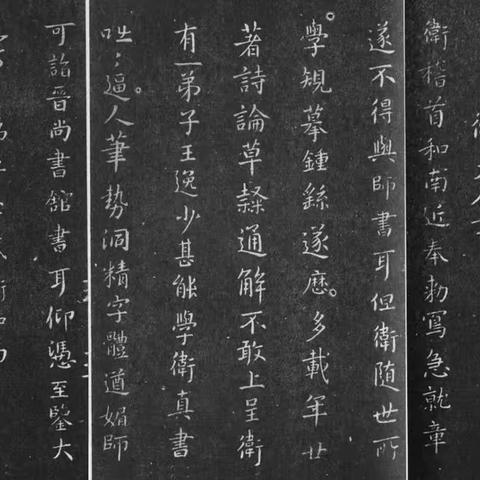 衛稽首和南近奉勅寫急就章
遂不得與師書耳但衛随世所
學規摹鍾繇遂歷多載年廿
著詩論草隸通解不敢上呈衛
有一弟子王逸少甚能學衛真書
咄〻逼人筆勢洞精字體遒媚師
可詣晉尚書舘書耳仰憑至鑒大